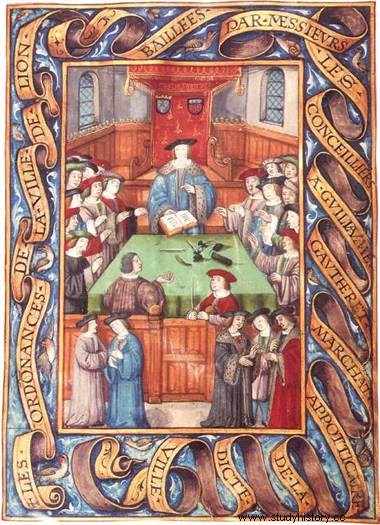 LES
ORDONANCES
DE
LA VILLE DE
LION
BAILLEES
PAR MESSIEVRS
LES
CONCEILLIERS
A GVILLAVME
MARCHAT
DE LA
DICTE
VILLE
www.studyhistory.cc